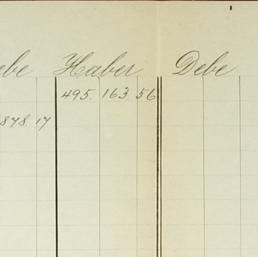 Debe Haber Debe
495. 163. 56
878. 17